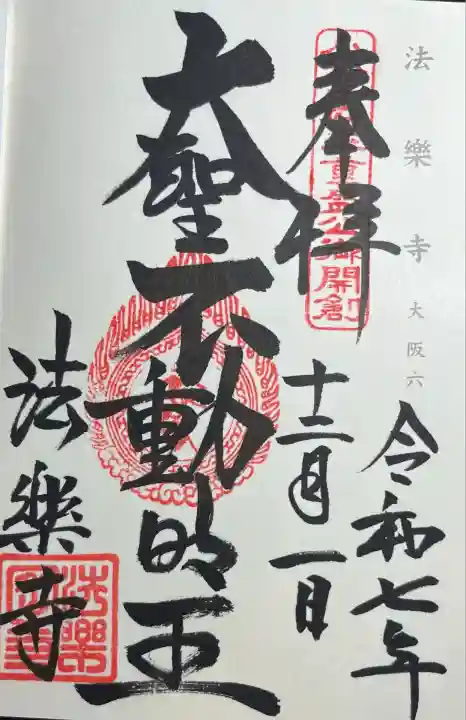 法樂寺 大阪六
奉拝
令和七年
十二月一日
大聖不動明王
法樂寺